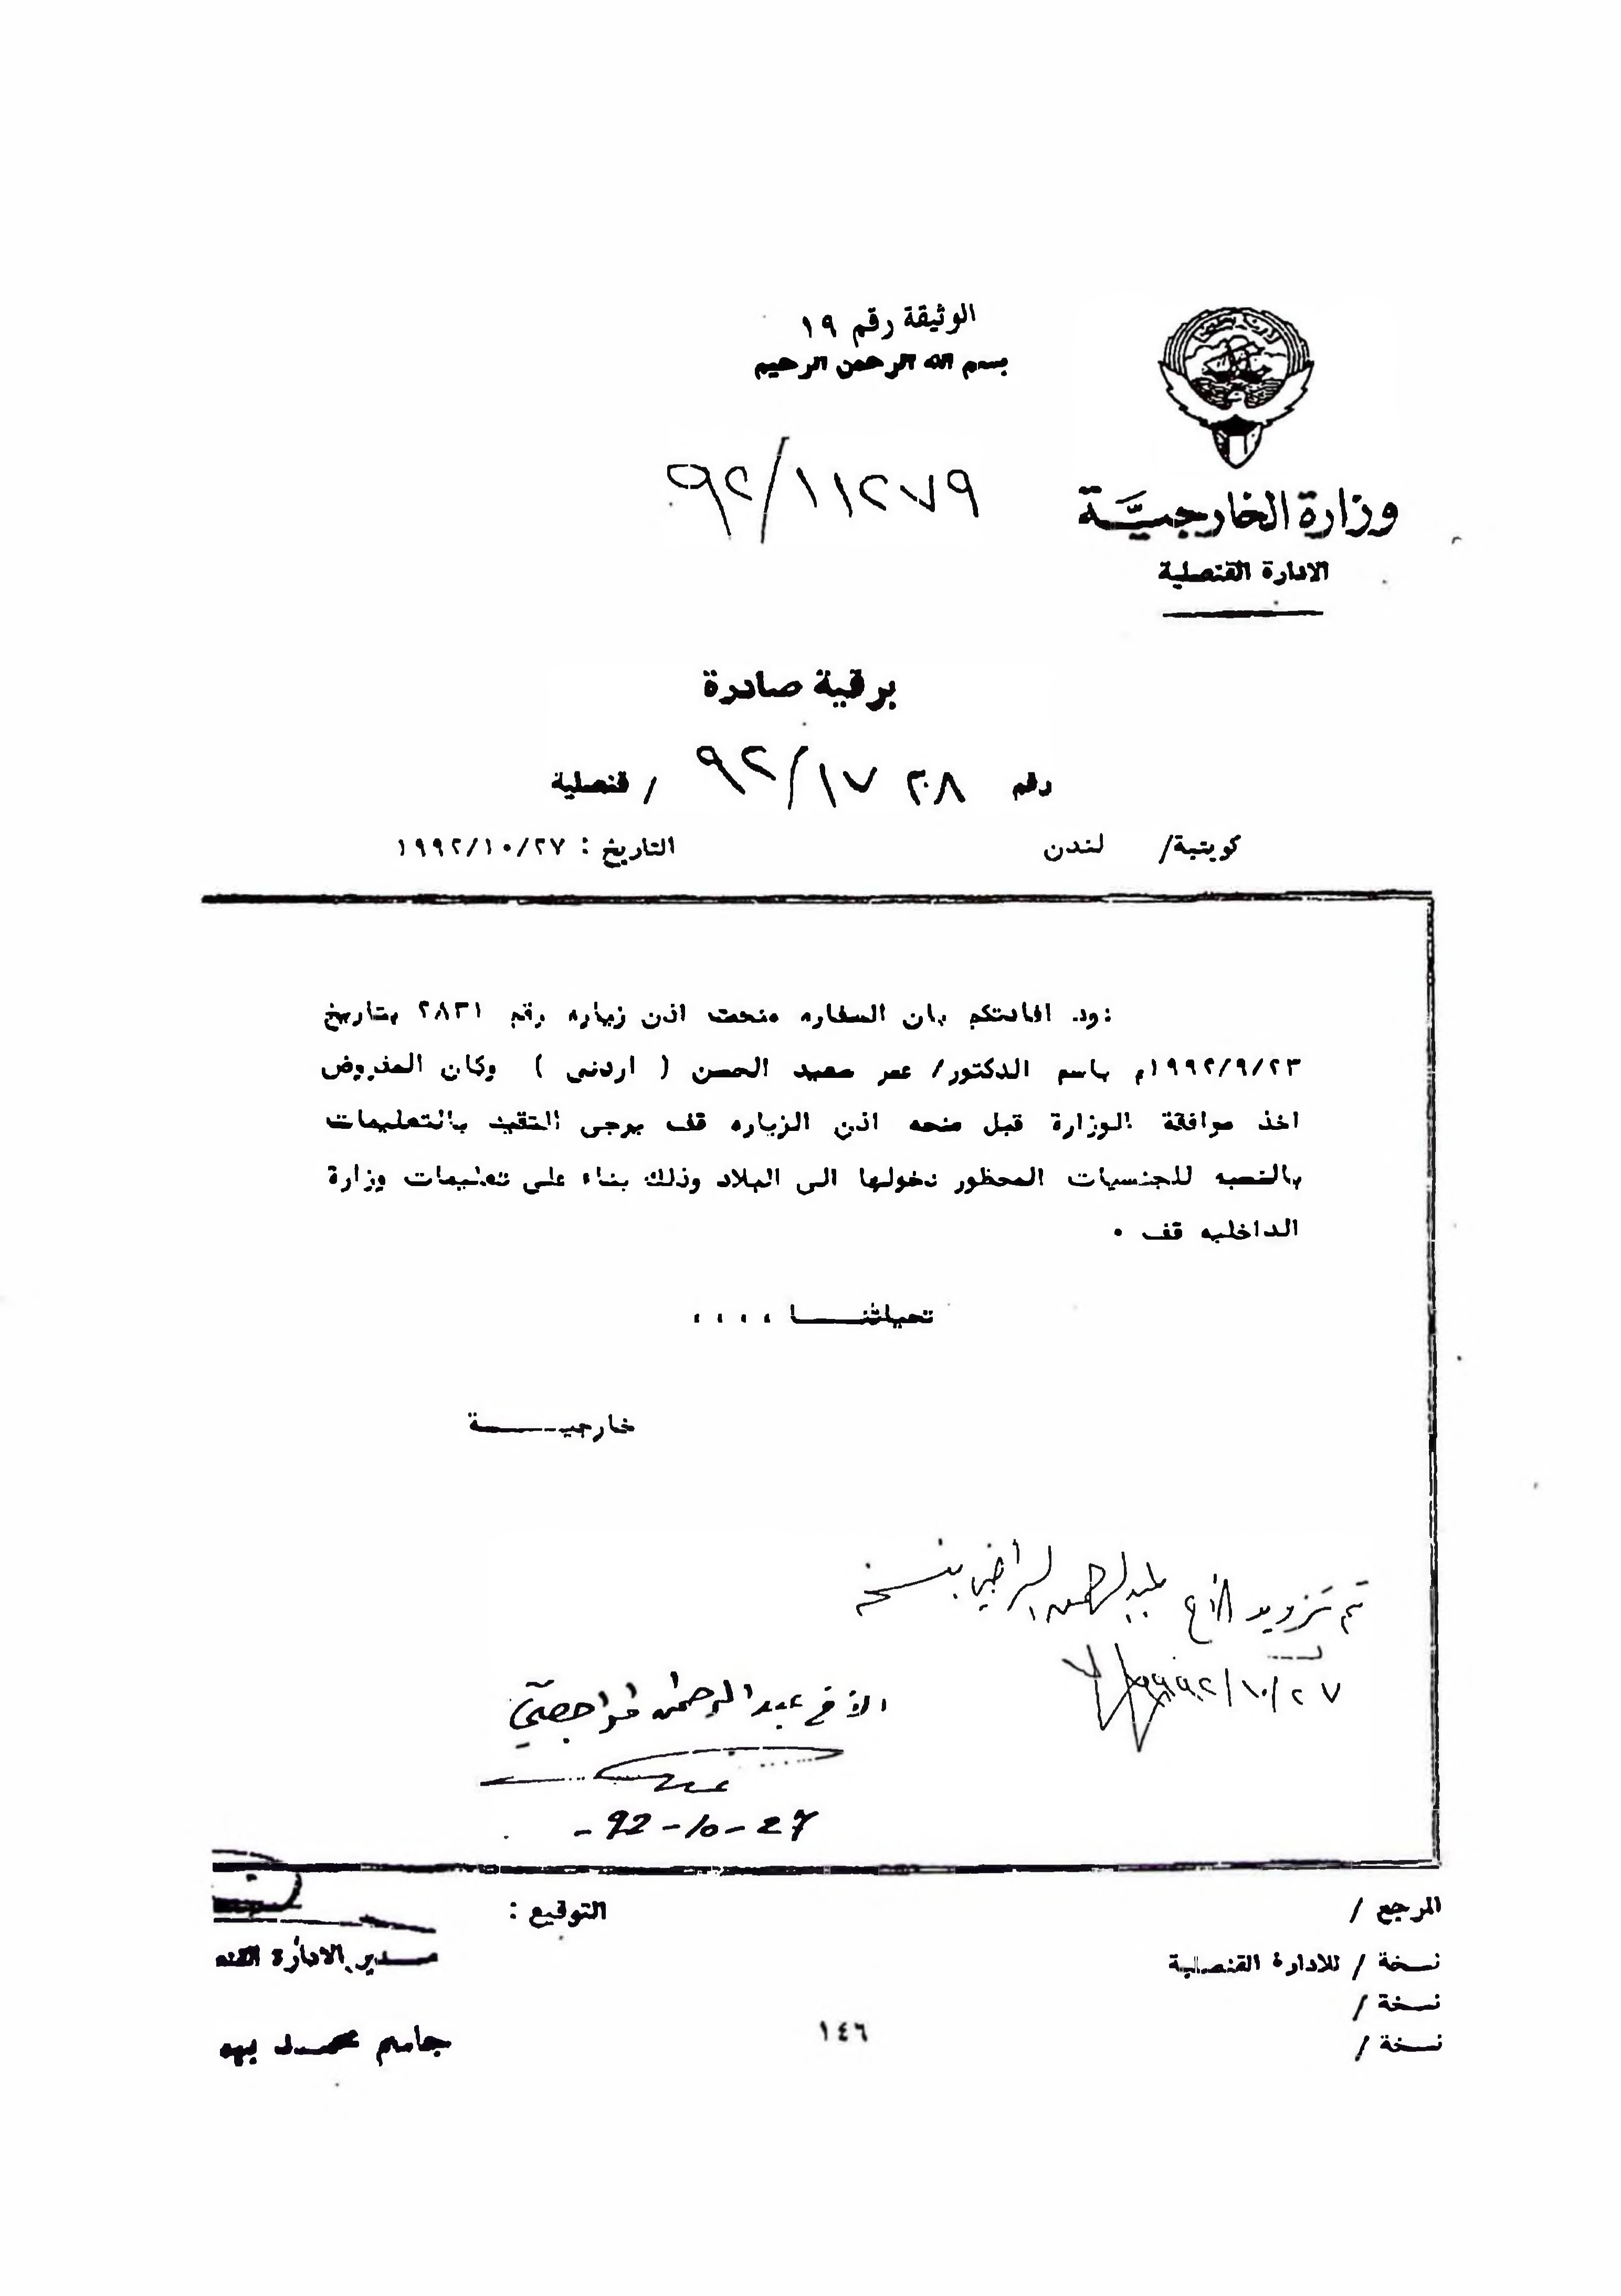 الوثيقة رقم ١٩
بسم الله الرحمن الرحيم
٩٢/١١٢٧٩
وزارة الخارجية
الادارة القنصلية
برقية صادرة
رقم ٩٢/١٧٣٠٨ / قنصلية
كويتية/ لندن التاريخ : ١٩٩٢/١٠/٢٧
نود افادتكم بان السفاره منحت اذن زياره رقم ٢٨٣١ بتاريخ
١٩٩٢/٩/٢٣م باسم الدكتور/ عمر سعيد الحسن ( اردنى ) وكان المفروض
اخذ موافقة الوزارة قبل منحه اذن الزياره قف يرجى التقيد بالتعليمات
بالنسبه للجنسيات المحظور دخولها الى البلاد وذلك بناء على تعليمات وزارة
الداخليه قف .
تحياتنـــا ،،،،
خارجيـــة
تم تزويد الأخ بنسخة
١٩٩٢/١٠/٢٧
الأخ عبدالرحمن
92-10-27-
المرجع / التوقيع :
نسخة / للادارة القنصلية مـدير الادارة القنص
نسخة /
نسخة / جاسم محمـد بهـ
١٤٦